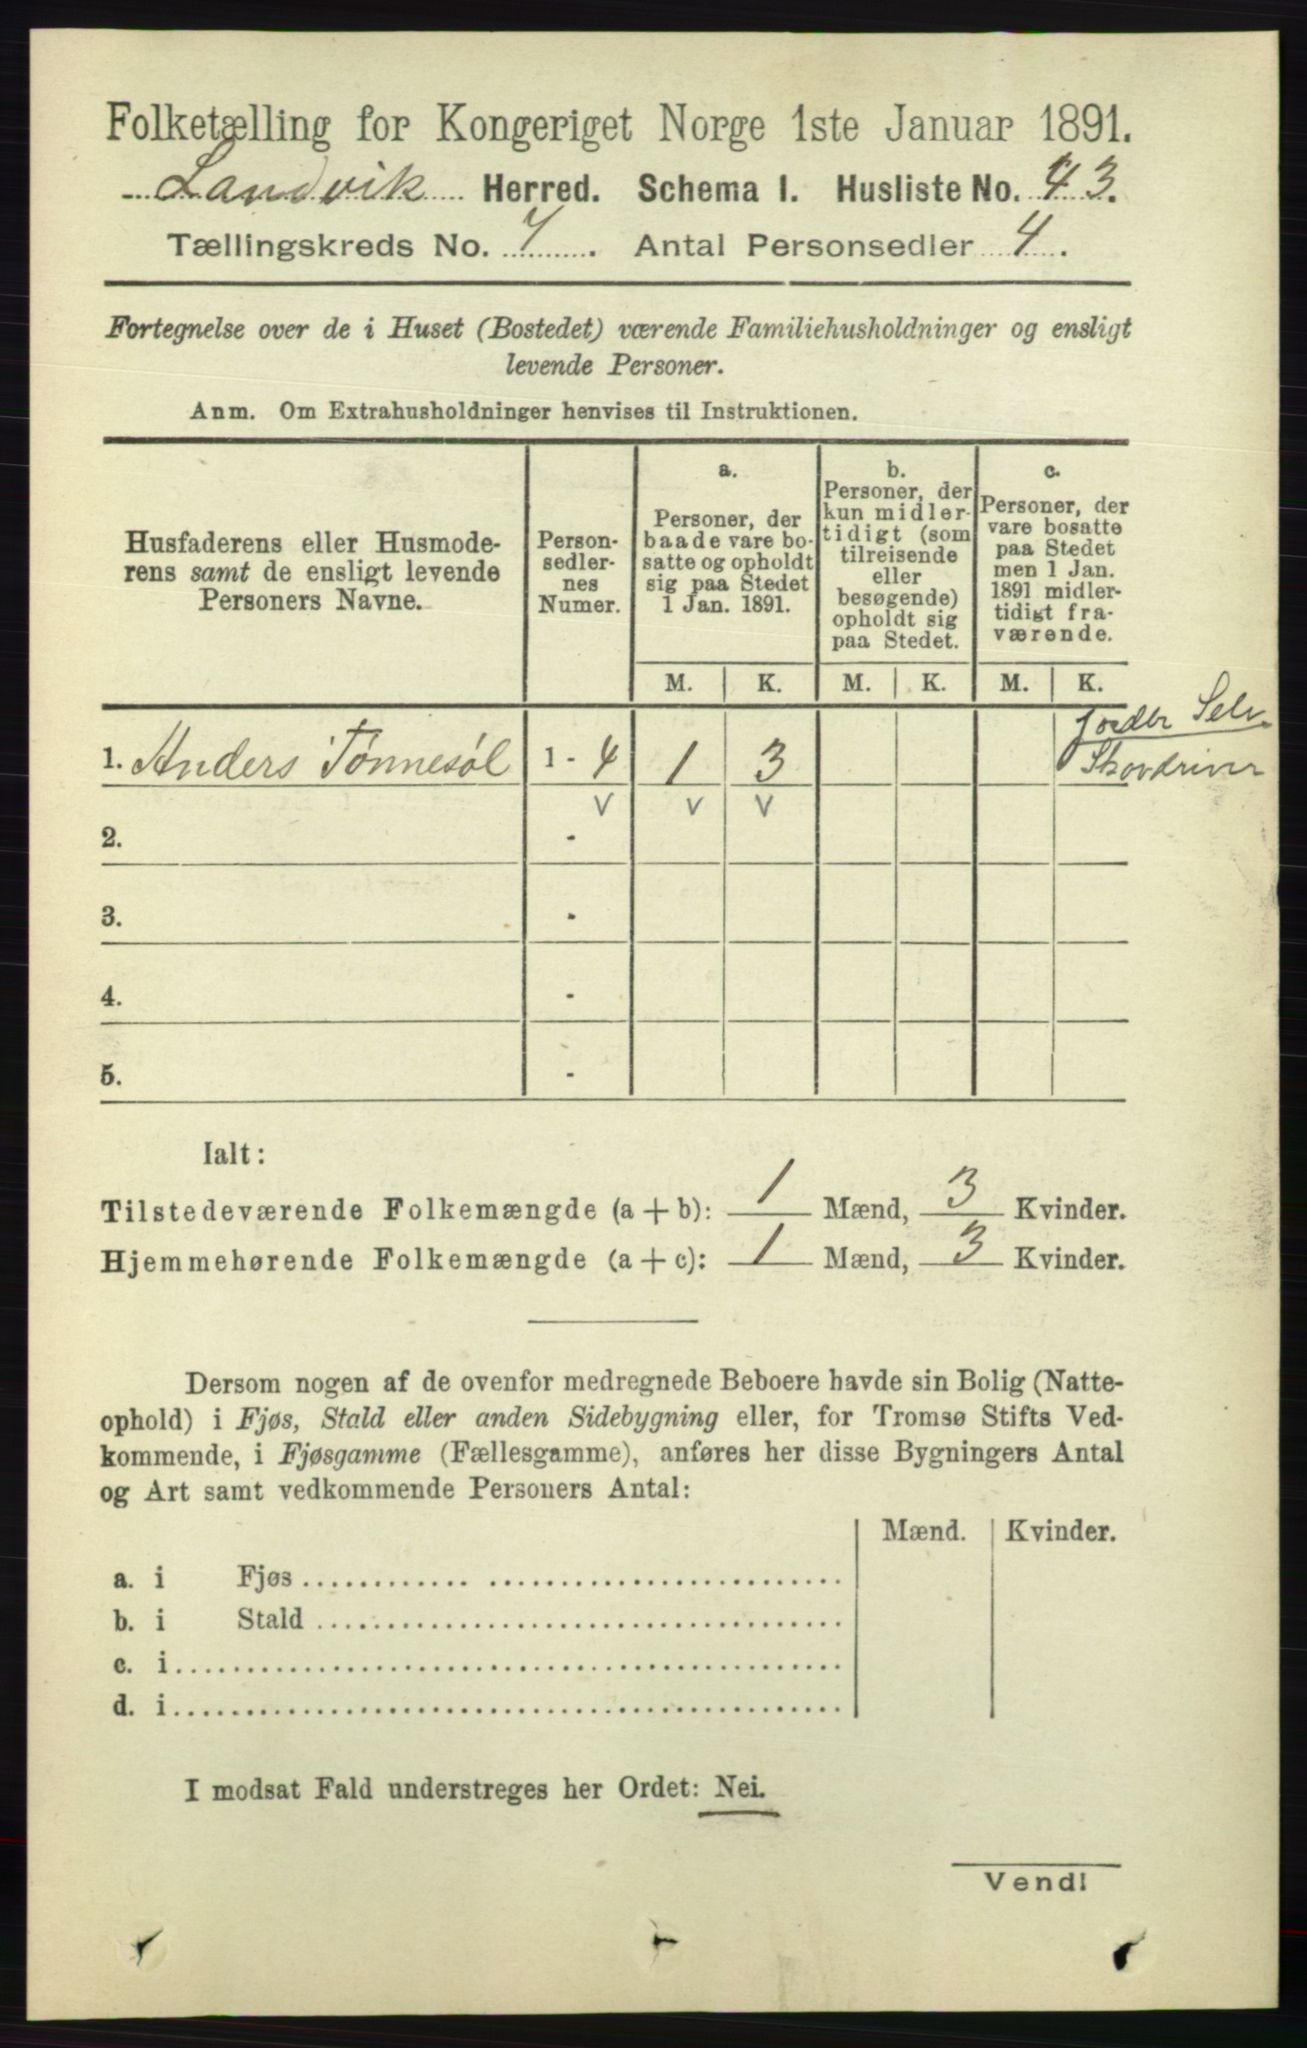 Folketælling for Kongeriget Norge 1ste Januar 1891.
Landvik Herred. Schema I. Husliste No. 43.
Tællingskreds No. 7. Antal Personsedler 4.
Fortegnelse over de i Huset (Bostedet) værende Familiehusholdninger og ensligt
levende Personer.
Anm. Om Extrahusholdninger henvises til Instruktionen.
Husfaderens eller Husmode-
rens samt de ensligt levende
Personers Navne.
Person-
sedler-
nes
Numer.
a.
Personer, der
baade vare bo-
satte og opholdt
sig paa Stedet
1 Jan. 1891.
b.
Personer, der
kun midler-
tidigt (som
tilreisende
eller
besøgende)
opholdt sig
paa Stedet.
c.
Personer, der
vare bosatte
paa Stedet
men 1 Jan.
1891 midler-
tidigt fra-
værende.
M. K. M. K. M. K.
Jordbr Selv.
Skovdriver
1. Anders Tønnesøl 1 - 4 1 3
v v v
2. -
3. -
4. -
5. -
Ialt:
Tilstedeværende Folkemængde (a + b): 1 Mænd, 3 Kvinder.
Hjemmehørende Folkemængde (a + c): 1 Mænd, 3 Kvinder.
Dersom nogen af de ovenfor medregnede Beboere havde sin Bolig (Natte-
ophold) i Fjøs, Stald eller anden Sidebygning eller, for Tromsø Stifts Ved-
kommende, i Fjøsgamme (Fællesgamme), anføres her disse Bygningers Antal
og Art samt vedkommende Personers Antal:
Mænd. Kvinder.
a. i Fjøs
b. i Stald
c. i
d. i
I modsat Fald understreges her Ordet: Nei.
Vend!